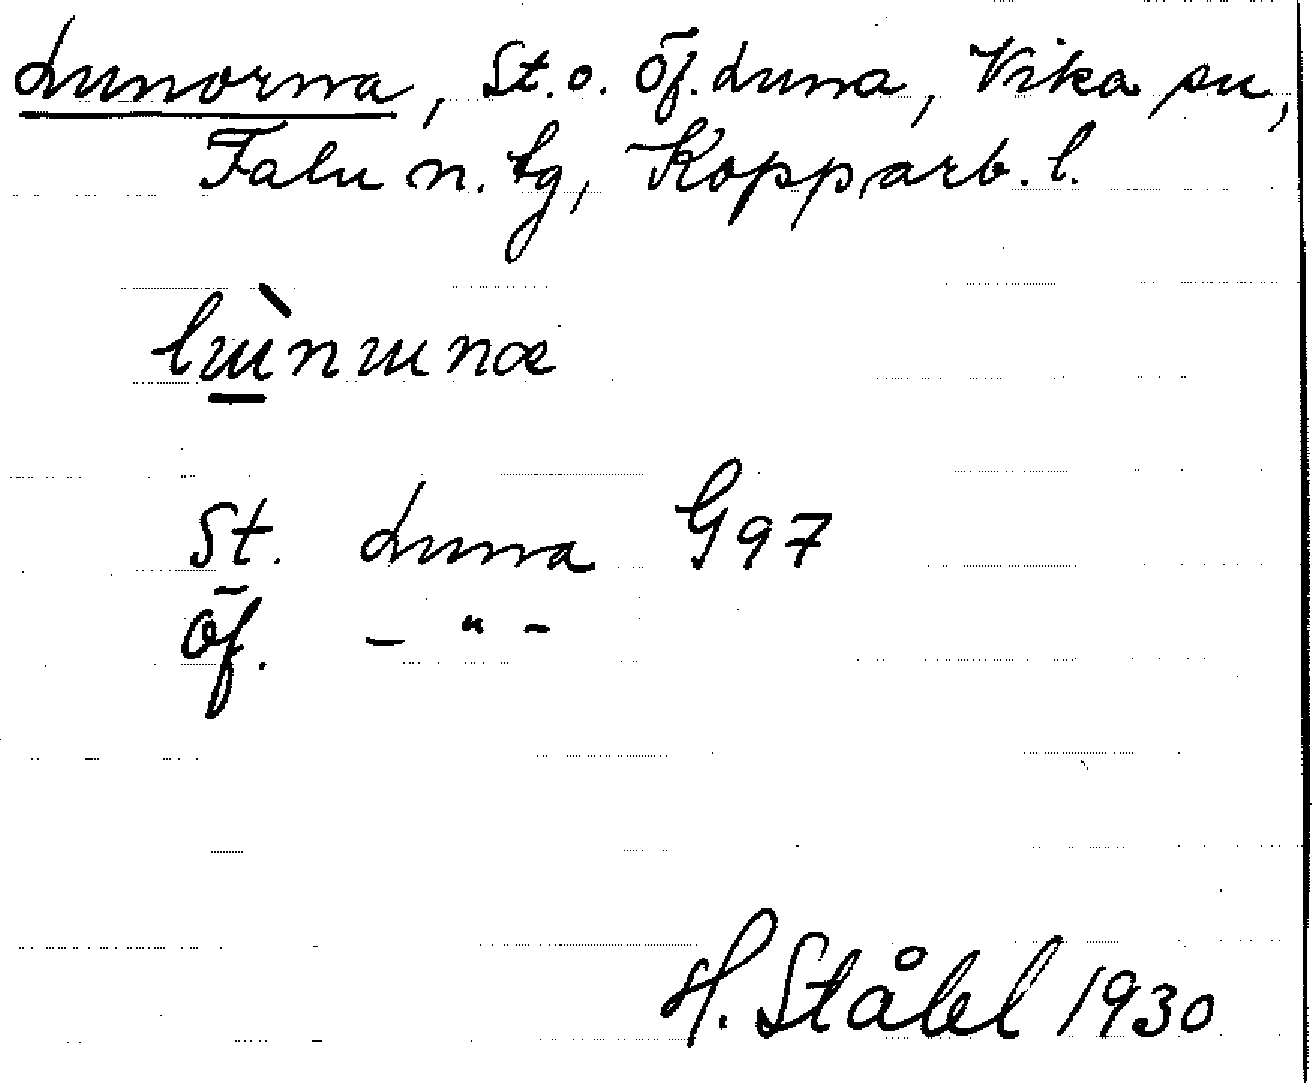 Lunorna, St. o. Öf. Luna, Vika sn,
Falu n. tg, Kopparb. l.
lɯ̀nɯnæ
St. Luna G97
Öf. – " –
H. Ståhl 1930